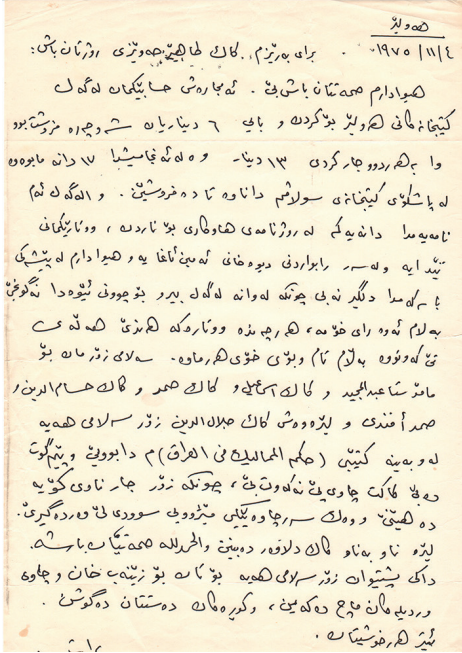 هەولێر
١٩٧٥/١١/٤ . برای بەڕێزم . کاک طاهیر حەوێزی ڕۆژتان باش :
هیوادارم صحەتتان باش بێ . ئەمجارەش حسابێکمان لەگەل
کتێبخانەکانی هەولێر بۆ کردن و بایی ٦ دیناریان فرۆشت بوو
وا بە هەردوو جار کردی ١٣ دینار . وە لە ئەنجامیشدا ١٧ دانە مابوەوە
لە پاشکۆی کتێبخانەی سۆلاقم داناوە تا دەفرۆشێن . و الەگەل ئەم
نامەیەمدا دانەیەکم لە ڕۆژنامەی هاوکاری بۆ ناردن ، ووتارێکمانی
تێدایە ولەسەر ڕابواردنی دیوەخانی ئەمین ئاغایە و هیوادارم لە پێشەکی
باسەکەمدا دڵگیر نەبی چونکە لەوانە لەگەل بیر و بۆچوونی ئێوەدا نەگونجێ
بەلام ئەوە ڕای خۆمە ، هەرچەندە ووتارەکە هەندێ هەڵەی
تێکەوتووە بەڵام تام و بۆی خۆی هەرماوە . سەلامی زۆرمان بۆ
مامۆستا عبدالمجید و کاک اسماعیل و کاک صمد و کاک حسام الدین و
صمد أفندی و لێرەوەش کاک جلال الدین زۆر سەلامی هەیە
لەو بەینە کتێبی (حكم المماليك في العراق) م دابوویێ و پێم گوت
دەبێ کاکت چاوی پێ نەکەوتبێ ، چونکە زۆر جار ناوی کۆیە
دەهێنێ و وەک سەرچاوەیێکی مێژوویی سوودی لێ وەردەگیرێ .
لێرە ناو بەناو کاک دلاوەر دەبینین والحمدلله صحەتێکیان باشە .
داکی پشتیوان زۆر سەلامی هەیە بۆتان بۆ زێنەب خان و چاوی
وردیلەکان ماچ دەکەین ، وکوڕەکان دەستتان دەگوشن .
ئیتر هەر خۆشیتان .